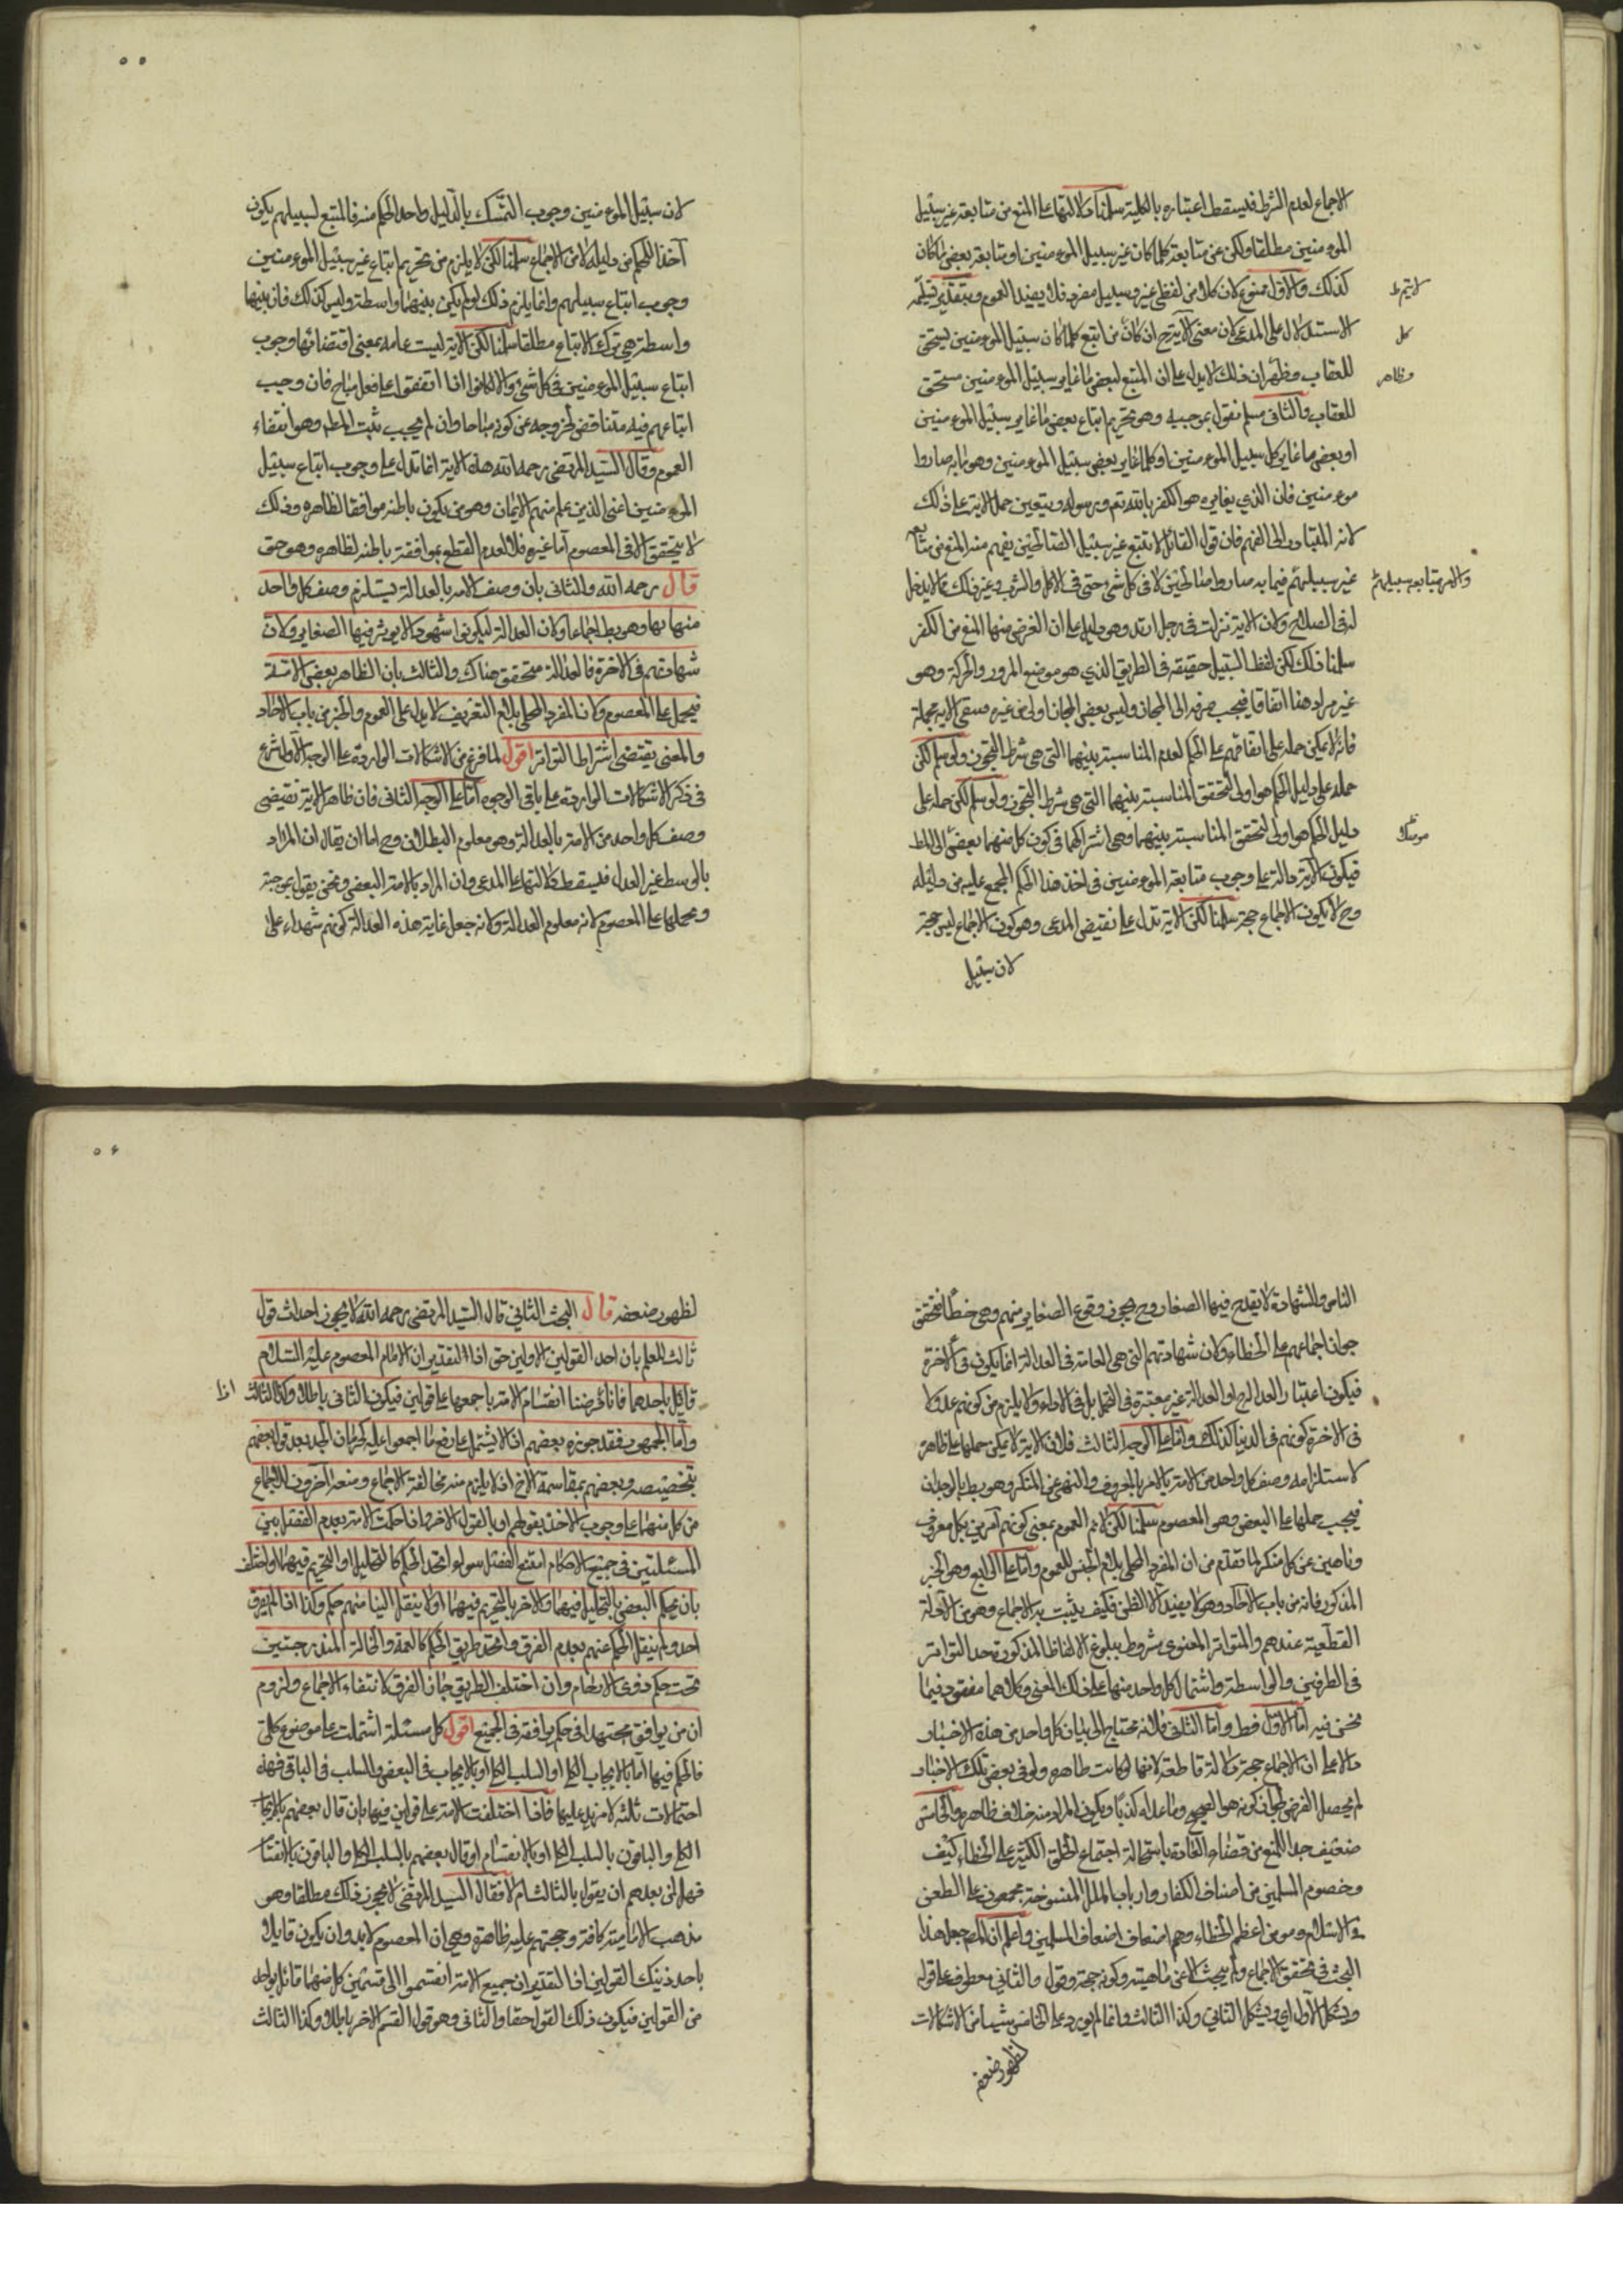 الاجماع لعدم الشرط فليسقط اعتباره بالكلية سلمنا دلالتها على المنع من متابعة غير سبيل
المومنين مطلقا ولكن عن متابعة كلما كان غير سبيل المومنين او متابعة بعض ما كان
كذلك والاول ممنوع لان كلا من لفظي غير وسبيل مفرد فلا يفيد العموم وبتقدير تسليمه
لا يتم
الاستدلال على المدعى لان معنى الآية ح ان كان من اتبع كلما كان سبيل المومنين يستحق
كل
للعقاب وظهر ان ذلك لا يدل على ان المتبع لبعض ما غاير سبيل المومنين مستحق
وظاهر
للعقاب والثاني مسلم نقول بموجبه وهو تحريم اتباع بعض ما غاير سبيل المومنين
او بعض ما غاير كل سبيل المومنين او كلما غاير بعض سبيل المومنين وهو ما به صاروا
مومنين فان الذي يغايره هو الكفر بالله تع ورسوله ويتعين حمل الاية على ذلك
لانه المتبادر الى الفهم فان قول القائل لا تتبع غير سبيل الصالحين يفهم منه المنع من متابعة
غير سبيلهم فيما به صاروا صالحين لا في كل شيء حتى في الاكل والشرب وغير ذلك مما لا يدخل
والامر بمتابعة سبيلهم
له في الصلاح ولان الاية نزلت في رجل ارتد وهو دليل على ان الغرض منها المنع من الكفر
سلمنا ذلك لكن لفظ السبيل حقيقة في الطريق الذي هو موضع المرور والحركة وهو
غير مراد هنا اتفاقا فيجب صرفه الى المجاز وليس بعض المجاز اولى من غيره فتبقى الاية مجملة
فانه لا يمكن حمله على اتفاقهم على الحكم لعدم المناسبة بينهما التي هي شرط التجوز ولو سلم لكن
حمله على دليل الحكم هو اولى لتحقق المناسبة بينهما التي هي شرط التجوز ولو سلم لكن حمله على
دليل الحكم هو اولى لتحقق المناسبة بينهما وهي اشتراكهما في كون كل منهما يفضي الى المط
فيكون الآية دالة على وجوب متابعة المومنين في اخذ هذا الحكم المجمع عليه من دليله
وح لا يكون الاجماع حجة سلمنا لكن الاية تدل على نقيض المدعى وهو كون الاجماع ليس حجة
لان سبيل
لان سبيل المومنين وجوب التمسك بالدليل واخذ الحكم منه فالمتبع لسبيلهم يكون
آخذا للحكم من دليله لا من الاجماع سلمنا لكن لا يلزم من تحريم اتباع غير سبيل المومنين
وجوب اتباع سبيلهم وانما يلزم ذلك لو لم يكن بينهما واسطة وليس كذلك فان بينها
واسطة هي ترك الاتباع مطلقا سلمنا لكن الاية ليست عامة بمعنى اقتضائها وجوب
اتباع سبيل المومنين في كل شيء والا لكانوا اذا اتفقوا على فعل مباح فان وجب
اتباعهم فيه متناقض لخروجه عن كونه مباحا وان لم يجب ثبت المط وهو انتفاء
العموم وقال السيد المرتضى رحمه الله هذه الاية انما تدل على وجوب اتباع سبيل
المومنين اعني الذين علم منهم الايمان وهو من يكون باطنه موافقا لظاهره وذلك
لا يتحقق الا في المعصوم اما غيره فلا لعدم القطع بموافقة باطنه لظاهره وهو حق
قال رحمه الله والثاني بان وصف الامة بالعدالة يستلزم وصف كل واحد
منها بها وهو بط اجماعا وكان العدالة ليكونوا شهودا لا يوثر فيها الصغاير ولان
شهادتهم في الاخرة فالعدالة متحقق هناك والثالث بان الظاهر بعض الامة
فيحمل على المعصوم وكان المفرد المحلى بلام التعريف لا يدل على العموم والخبر من باب الاحاد
والمعنى يقتضي اشتراط التواتر اقول لما فرغ من الاشكالات الواردة على الوجه الاول شرع
في ذكر الاشكالات الواردة على باقي الوجوه اما على الوجه الثاني فان ظاهر الاية تقتضي
وصف كل واحد من الامة بالعدالة وهو معلوم البطلان وح اما ان يقال ان المراد
بالوسط غير العدل فليسقط دلالتها على المدعى وان المراد بالامة البعض ونحن نقول بموجبه
ومحملها على المعصوم لانه معلوم العدالة ولانه جعل غاية هذه العدالة كونهم شهداء على
الناس والشهادة لا يقدح فيها الصغار وح يجوز وقوع الصغاير منهم وهي خطأ فتحقق
جواز اجماعهم على الخطاء ولان شهادتهم التي هي الغاية في العدالة انما يكون في الآخرة
فيكون اعتبار العدالة ح اذ العدالة غير معتبرة في التحمل بل في الاداء ولا يلزم من كونهم عدولا
في الاخرة كونهم في الدنيا كذلك واما على الوجه الثالث فلان الاية لا يمكن حملها على ظاهرها
لاستلزامه وصف كل واحد من الامة بالامر بالمعروف والنهي عن المنكر وهو بط بالوجدان
فيجب حملها على البعض وهو المعصوم سلمنا لكن لا نم العموم بمعنى كونهم آمرين بكل معروف
وناهين عن كل منكر لما تقدم من ان المفرد المحلى بلام الجنس للعموم واما على الرابع وهو الخبر
المذكور فانه من باب الآحاد وهو لا يفيد الا الظن فكيف يثبت به الاجماع وهو من الادلة
القطعية عندهم والمتواتر المعنوي مشروط ببلوغ الالفاظ المذكورة حد التواتر
في الطرفين والواسطة واشتمال كل واحد منها على ذلك المعنى وكلاهما مفقود فيما
نحن فيه اما الاول فط واما الثاني فلانه محتاج الى بيان كل واحد من هذه الاخبار
دالا على ان الاجماع حجة دلالة قاطعة لانها لو كانت ظاهره ولو في بعض تلك الاخبار
لم يحصل الغرض لجواز كونه هو الصحيح وما عداه كذبا ويكون المراد منه خلاف ظاهره والخامس
ضعيف جدا للمنع من قضاء العادة باستحالة اجتماع الخلق الكثير على الخطاء كيف
وخصوم المسلمين من اصناف الكفار وارباب الملل المنسوخة مجمعون على الطعن
في الاسلام وهو من اعظم الخطاء وهم اضعاف اضعاف المسلمين واعلم ان المص جعل هذا
البحث في تحقق الاجماع ولم يبحث الا عن ماهيته وكونه حجة وقول والثاني معطوف على قوله
ويشكل الاول اي ويشكل الثاني وكذا الثالث وانما لم يورد على الخامس شيئا من الاشكالات
لظهور ضعفه
لظهور ضعفه قال البحث الثاني قال السيد المرتضى رحمه الله لا يجوز احداث قول
ثالث للعلم بان احد القولين الاولين حق اذا التقدير ان الامام المعصوم عليه السلام
قايل باحدهما فانا فرضنا انقسام الامة باجمعها على قولين فيكون الثاني باطلا وكذا الثالث
واما الجمهور فقد جوزه بعضهم اذ لا يشتمل على رفع ما اجمعوا عليه كحرمان الجد بعد قول بعضهم
بتخصيصه وبعضهم بمقاسمة الاخ اذ لا يلزم منه مخالفة الاجماع ومنعه آخرون للاجماع
من كل منهما على وجوب الاخذ بقولهم او بالقول الاخر واذا حكمت الامة بعدم الفصل بين
المسئلتين في جميع الاحكام امتنع الفصل سواء اتحد الحكم كالتحليل او التحريم فيهما او اختلف
بان يحكم البعض بالتحليل فيهما والاخر بالتحريم فيهما او لا ينقل الينا منهم حكم وكذا اذا لم يفرق
احد ولم ينقل الحكم عنهم بعدم الفرق واتحد طريق الحكم كالعمة والخالة المندرجتين
تحت حكم ذوي الارحام وان اختلف الطريق جاز الفرق لانتفاء الاجماع ولزوم
ان من يوافق مجتهدا في حكم يوافقه في الجميع اقول كل مسئلة اشتملت على موضوع كلي
فالحكم فيها اما بالايجاب الكلي او السلب الكلي او بالايجاب في البعض والسلب في الباقي فهذه
احتمالات ثلثة لا مزيد عليها فاذا اختلفت الامة على قولين فيها بان قال بعضهم بالايجاب
الكلي والباقون بالسلب الكلي او بالانقسام او قال بعضهم بالسلب الكلي والباقون بالانقسام
فهل لمن بعدهم ان يقول بالثالث ام لا فقال السيد المرتضى لا يجوز ذلك مطلقا وهو
مذهب الامامية كافة وحجتهم عليه ظاهرة وهي ان المعصوم لا بد وان يكون قايلا
باحد ذينك القولين اذا التقدير ان جميع الامة انقسموا الى قسمين كل منهما قائل بواحد
من القولين فيكون ذلك القول حقا والثاني وهو قول القسم الاخر باطلا وكذا الثالث